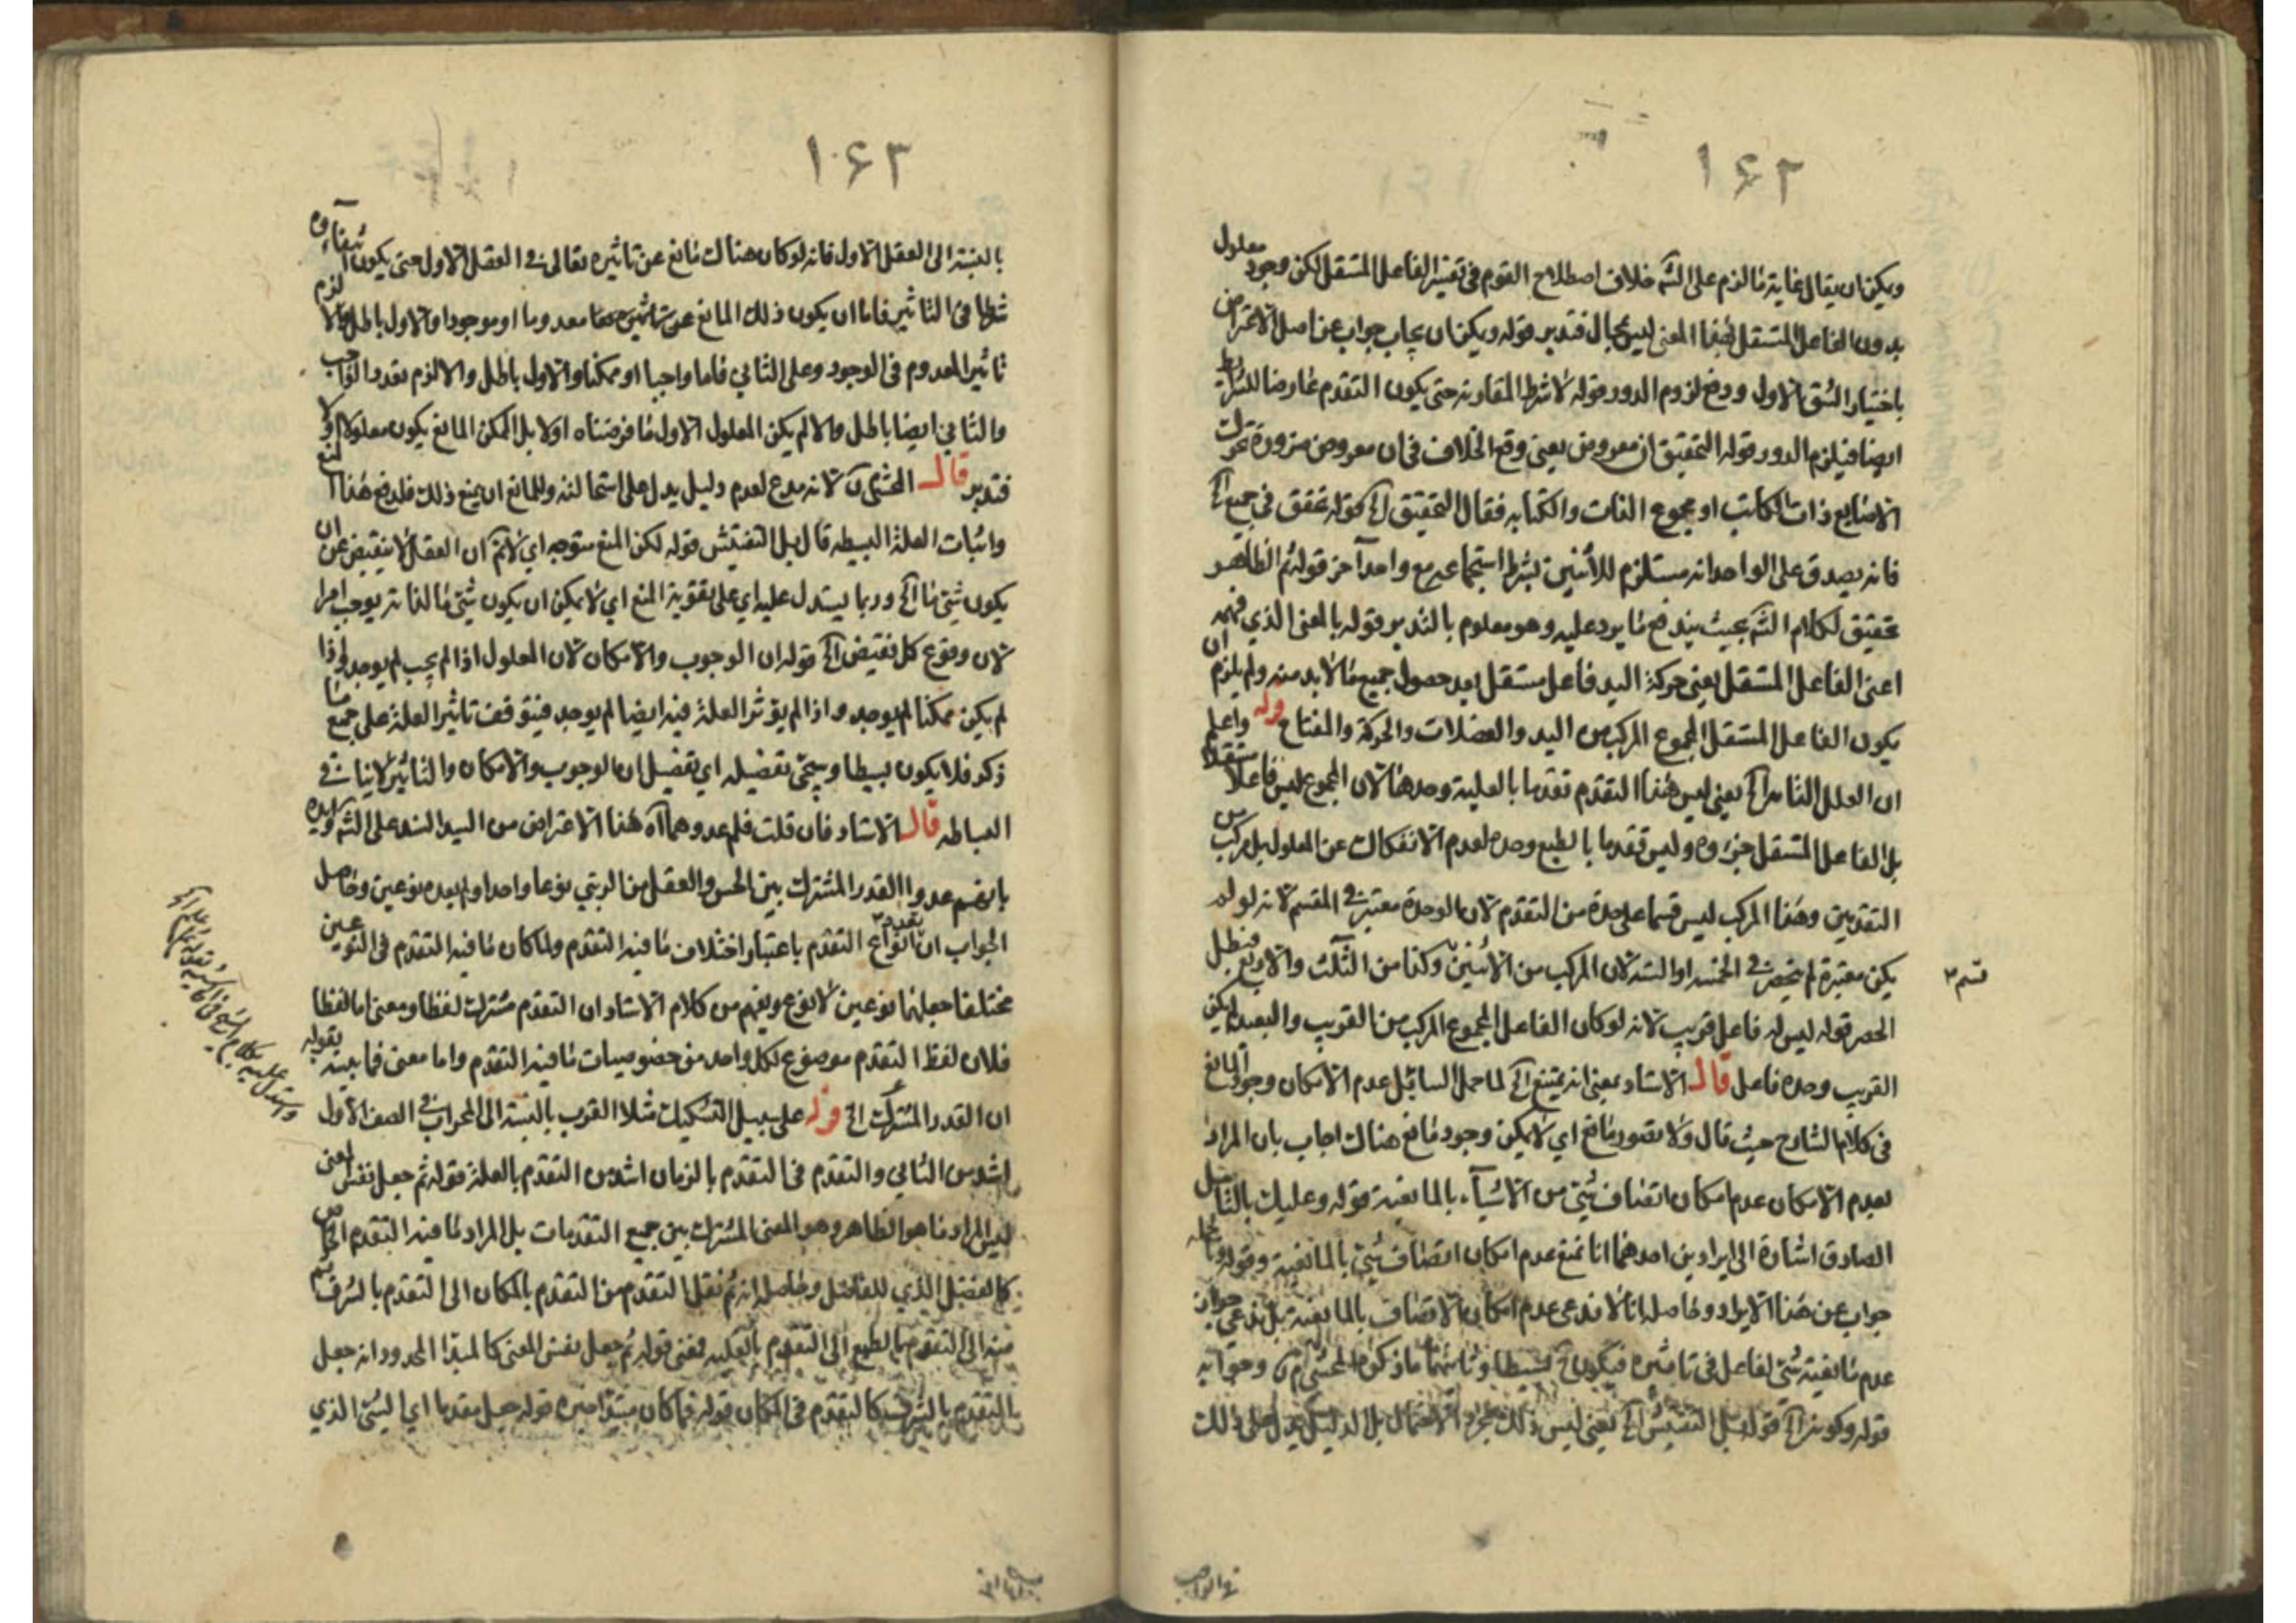 ١٦٢
ويمكن ان يقال غاية ما لزم على الشه خلاف اصطلاح القوم فى تفسير الفاعل المستقل لكن وجود معلول
بدون الفاعل المستقل بهذا المعنى ليس بمحال فتدبر قوله ويمكن ان يجاب جواب عن اصل الاعتراض
باختيار الشق الاول ودفع لزوم الدور قوله لا شرط المقارنة حتى يكون التقدم عارضا للشرط
ايضا فيلزم الدور قوله التحقيق ان معروض يعنى وقع الخلاف فى ان معروض ضرورة تحرك
الاصابع ذات الكاتب او مجموع الذات والكتابه فقال التحقيق الخ قوله تحقق فى جميع الخ
فانه يصدق على الواحد انه مستلزم للاثنين بشرط اجتماعه مع واحد آخر قوله ثم الظاهر
تحقيق لكلام الشه بحيث يندفع ما يرد عليه وهو معلوم بالتدبر قوله بالمعنى الذي فهمه
اعنى الفاعل المستقل يعنى حركة اليد فاعل مستقل بعد حصول جميع ما لا بد منه ولم يلزم ان
يكون الفاعل المستقل المجموع المركب من اليد والعضلات والحركة والمفتاح قوله واعلم
ان العلل التامه الخ يعنى ليس هذا التقدم تقدما بالعلية وحدها لان المجموع ليس فاعلا مستقلا
بل الفاعل المستقل جزءه وليس تقدما بالطبع وحده لعدم الانفكاك عن المعلول بل مركب من
التقدمين وهذا المركب ليس قسما على حدة من التقدم لان الوحدة معتبرة فى المقسم لانه لو لم
يكن معتبرة لم ينحصر فى الخمسه او السته لان المركب من الاثنين قسم وكذا من الثلث والاربع فيبطل
الحصر قوله ليس له فاعل قريب لانه لو كان الفاعل المجموع المركب من القريب والبعيد لم يكن
القريب وحده فاعل قال الاستاد بمعنى انه يمتنع الخ لما حمل السائل عدم الامكان وجود المانع
فى كلام الشارح حيث قال ولا يتصور مانع اي لا يمكن وجود مانع هناك اجاب بان المراد
بعدم الامكان عدم امكان اتصاف شئ من الاشياء بالمانعية قوله وعليك بالتامل
الصادق اشارة الى ايرادين احدهما انا نمنع عدم امكان اتصاف شئ بالمانعية وقوله
جواب عن هذا الايراد وحاصله انا لا ندعى عدم امكان الاتصاف بالمانعية بل ندعى جواز
عدم مانعية شئ لفاعل فى تاثيره فيكون ح بسيطا وثانيهما ما ذكره المحشى وجوابه
قوله وكونه الخ قوله قبل التفتيش الخ يعنى ليس ذلك مجرد الاحتمال بل الدليل يدل على ذلك
١٦٣
بالنسبة الى العقل الاول فانه لو كان هناك مانع عن تاثيره تعالى فى العقل الاول حتى يكون انتفاءه
شرطا فى التاثير فاما ان يكون ذلك المانع معدوما او موجودا والاول باطل والا لزم
تاثير المعدوم فى الوجود وعلى الثاني فاما واجبا او ممكنا والاول باطل والا لزم تعدد الواجب
والثاني ايضا باطل والا لم يكن المعلول الاول ما فرضناه اولا بل الممكن المانع يكون معلولا اولا
فتدبر قال المحشى لانه مدع لعدم دليل يدل على استحالته وللمانع ان يمنع ذلك فلدفع هذا المنع
واثبات العلة البسيطه قال قبل التفتيش قوله لكن المنع متوجه اي لا نم ان العقل لا ينقبض عن ان
يكون شئ ما الخ وربما يستدل عليه اي على تقوية المنع اي لا يمكن ان يكون شئ ما لذاته يوجب امرا
لان وقوع كل نقيض الخ قوله ان الوجوب والامكان لان المعلول اذا لم يجب لم يوجد واذا
لم يكن ممكنا لم يوجد واذا لم يؤثر العلة فيه ايضا لم يوجد فيتوقف تاثير العلة على جميع ما
ذكر فلا يكون بسيطا وسيجئ تفصيله اي تفصيل ان الوجوب والامكان والتاثير لا ينافى
البساطه قال الاستاد فان قلت فلم عدوهما اه هذا الاعتراض من السيد السند على الشه
بانهم عدوا القدر المشترك بين الحس والعقل من الرتبي نوعا واحدا ولم يعده نوعين وحاصل
الجواب ان تعدد انواع التقدم باعتبار اختلاف ما فيه التقدم ولما كان ما فيه التقدم فى النوعين
مختلفا جعلهما نوعين لا نوع ويفهم من كلام الاستاد ان التقدم مشترك لفظا ومعنى اما لفظا
فلان لفظ التقدم موضوع لكل واحد من خصوصيات ما فيه التقدم واما معنى فما بينه بقوله
ان القدر المشترك الخ قوله على سبيل التشكيك مثلا القرب بالنسبة الى المحراب فى الصف الاول
اشد من الثاني والتقدم فى التقدم بالزمان اشد من التقدم بالعلة قوله ثم جعل نفس المعنى
ليس المراد ما هو الظاهر وهو المعنى المشترك بين جميع التقدمات بل المراد ما فيه التقدم الخاص
كالفضل الذي للفاضل وحاصله انه ثم نقل التقدم من التقدم بالمكان الى التقدم بالشرف ثم
منه الى التقدم بالطبع الى التقدم بالعليه فمعنى قوله ثم جعل نفس المعنى كالمبدأ المحدود انه جعل
التقدم بالشرف كالتقدم فى المكان قوله فما كان مبتدأ خبره قوله جعل مقدما اي الشئ الذي